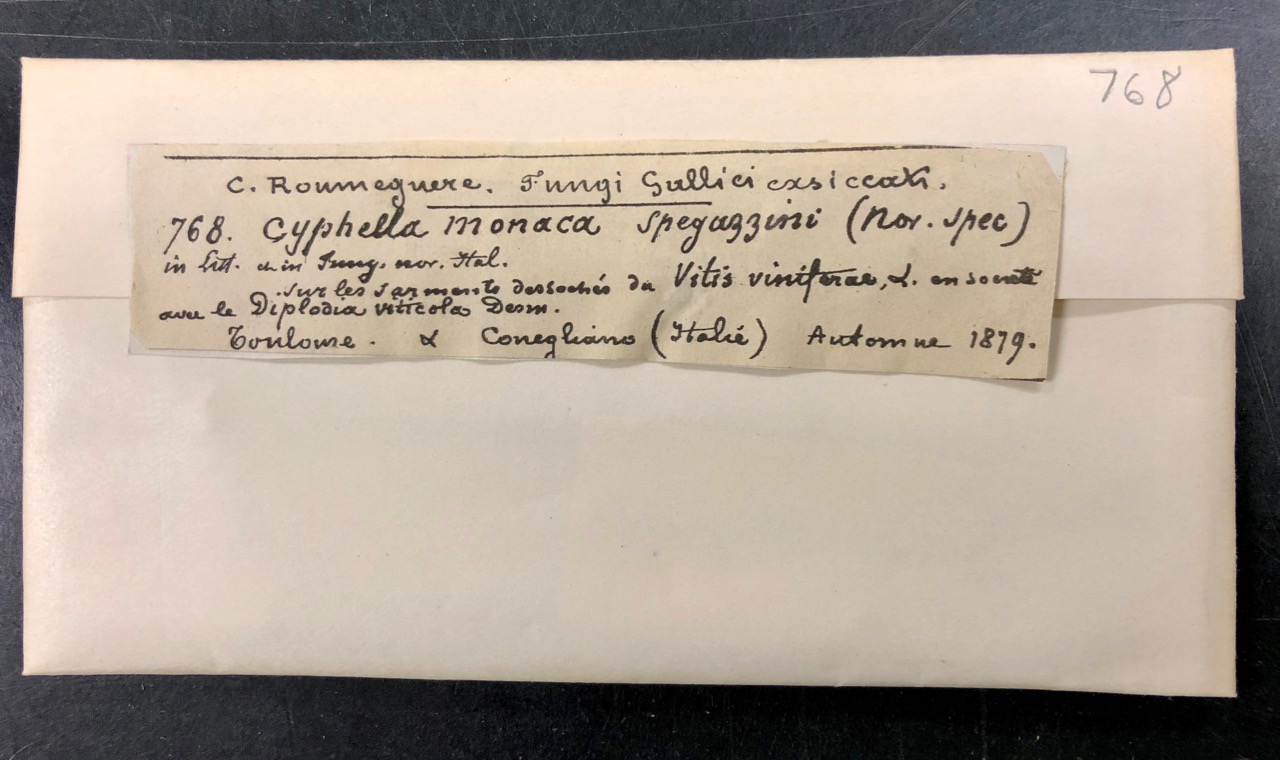 768
C. Roumeguere. Fungi Gallici exsiccati.
768. Cyphella monaca Spegazzini (Nov. spec)
in Litt. & in Fung. nov. Ital.
Sur les sarments dessechés du Vitis viniferae, L. en societé
avec le Diplodia viticola Desm.
Toulouse. & Conegliano (Italie) Automne 1879.